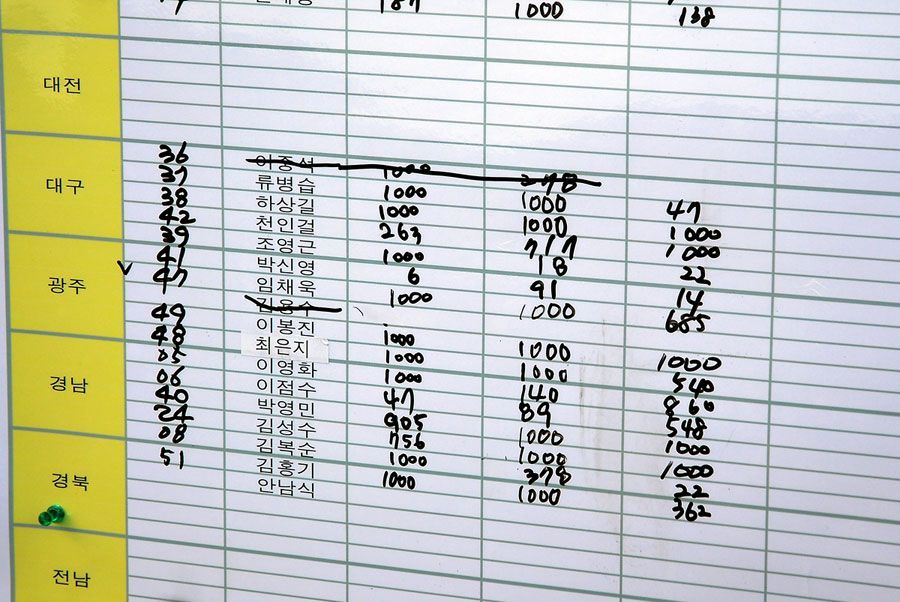 187 1000 138
대전
36 이중석 1000 278
37 류병습 1000 1000 47
대구
38 하상길 1000 1000 1000
42 천인걸 263 717 1000
39 조영근 1000 18 22
41 박신영 6 91 14
광주
v 47 임채욱 1000 1000 685
김용수
49 이봉진 1000 1000 1000
48 최은지 1000 1000 540
05 이영화 1000 140 860
경남
06 이점수 47 89 548
40 박영민 905 1000 1000
24 김성수 756 1000 1000
08 김복순 1000 378 22
51 김홍기 1000 1000 362
경북
안남식
전남